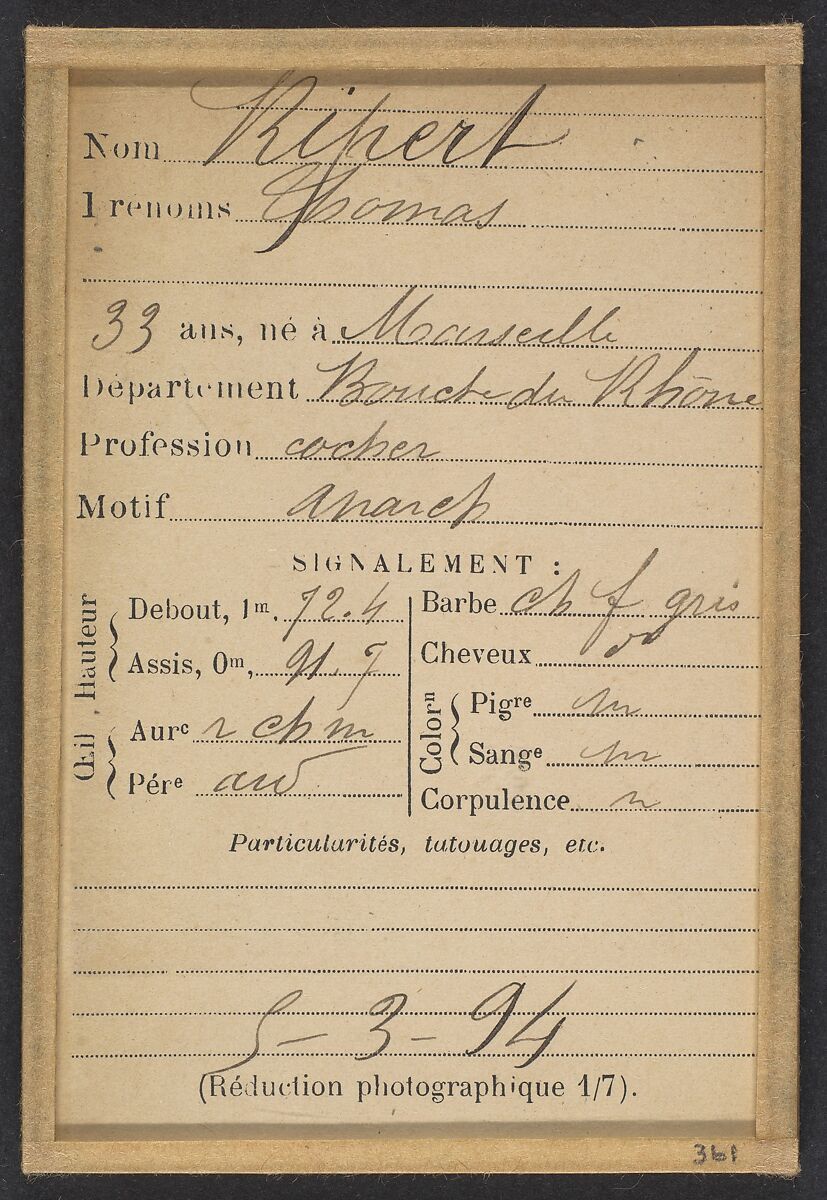 Nom Ripert
Prénoms Thomas
33 ans, né à Marseille
Département Bouche du Rhône
Profession cocher
Motif anarch
SIGNALEMENT :
Hauteur
Debout, 1m, 72.4
Assis, 0m, 91.7
Œil
Aure r ch m
Pére
Barbe ch f gris
Cheveux do
Colorn
Pigre m
Sange m
Corpulence
Particularités, tatouages, etc.
5-3-94
(Réduction photographique 1/7).
361